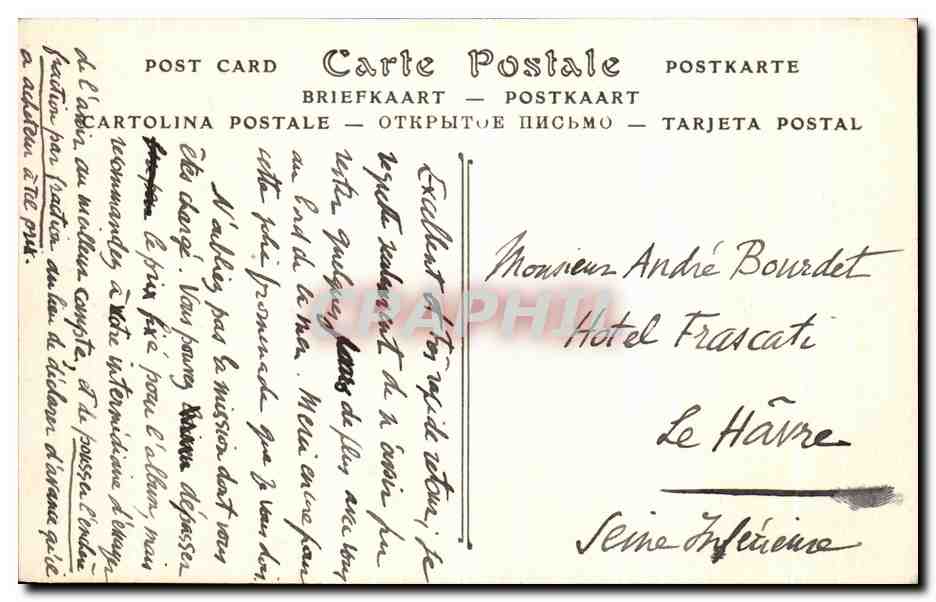 POST CARD Carte Postale POSTKARTE
BRIEFKAART — POSTKAART
CARTOLINA POSTALE — ОТКРЫТОЕ ПИСЬМО — TARJETA POSTAL
Excellent et très rapide retour, je
regrette seulement de n'avoir pu
rester quelques jours de plus avec vous
au bord de la mer. Merci encore pour
cette jolie promenade que je vous dois.
N'oubliez pas la mission dont vous
êtes chargé. Vous pouvez dépasser
le prix fixé pour l'album, mais
recommandez à votre intermédiaire d'essayer
de l'avoir au meilleur compte, et de pousser l'enchère
fraction par fraction au lieu de déclarer d'avance qu'il
a acheteur à tel prix.
Monsieur André Bourdet
Hôtel Frascati
Le Hâvre
Seine Inférieure
CPAPHIL